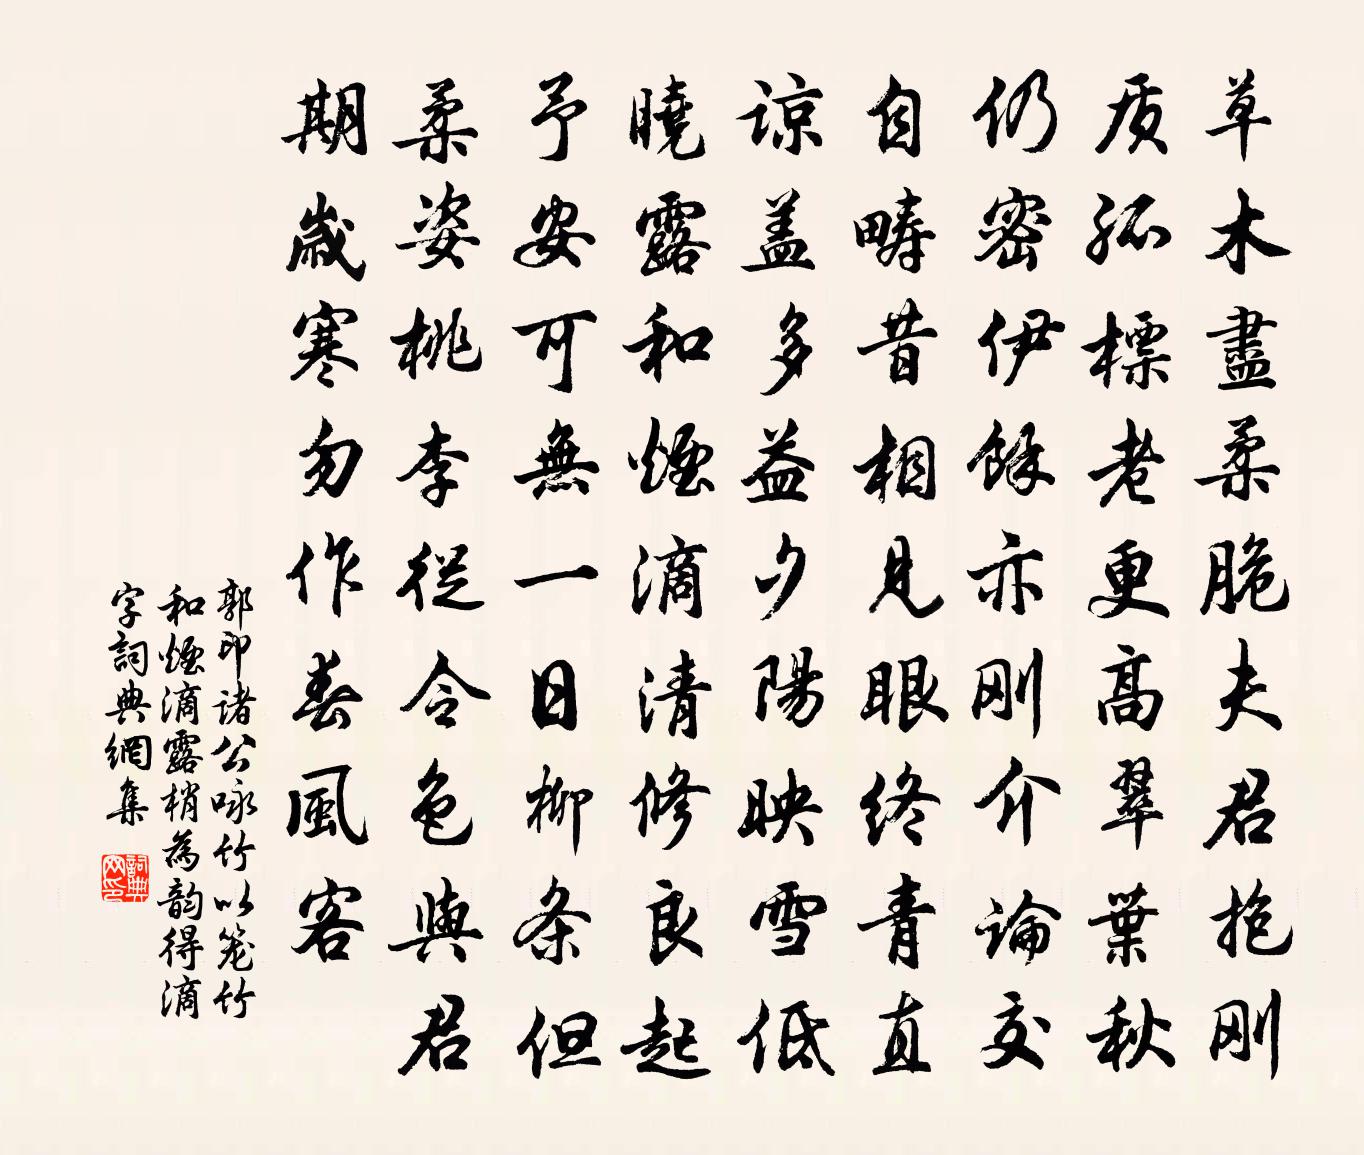 草木盡柔脆夫君抱刚
质孤標老更高翠葉秋
仍密伊餘亦刚介論交
自畴昔相見眼終青直
諒盖多益夕陽映雪低
曉露和煙滴清修良起
予安可無一日柳条但
柔姿桃李從令色與君
期歲寒勿作春風客
郭印諸公咏竹以笼竹
和煙滴露梢為韵得滴
字詞典網集
詞典
网印